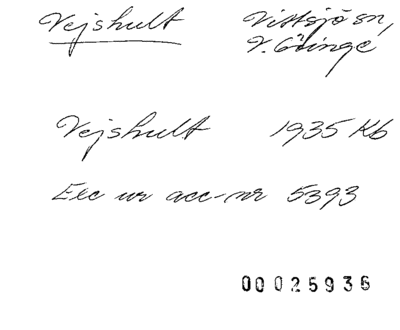 Vejshult Vittsjö sn,
V. Göinge
Vejshult 1935 Kb
Exc ur acc-nr 5393
00025936